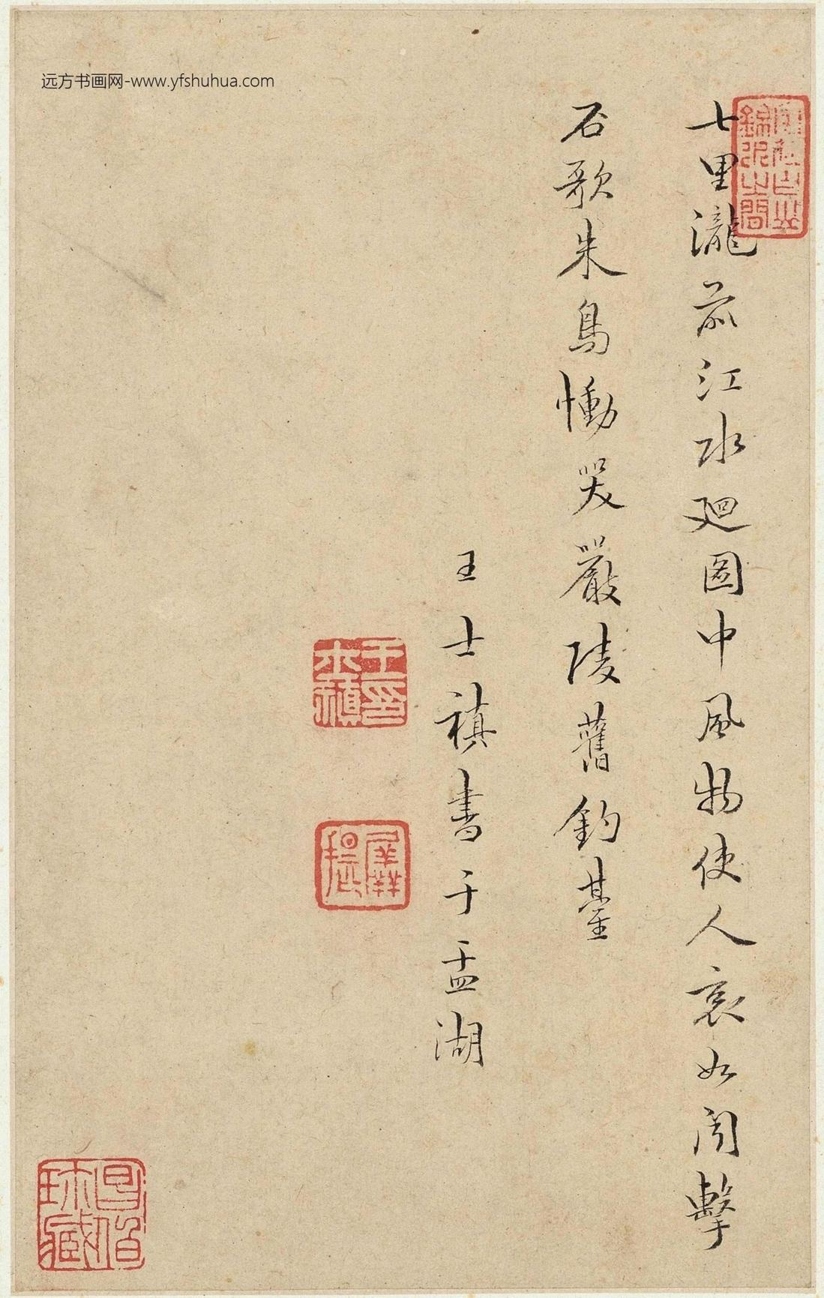 远方书画网-www.yfshuhua.com
七里瀧前江水廻圖中風物使人哀如聞擊
石歌朱鳥慟哭嚴陵舊釣臺
王士禛書于盂湖